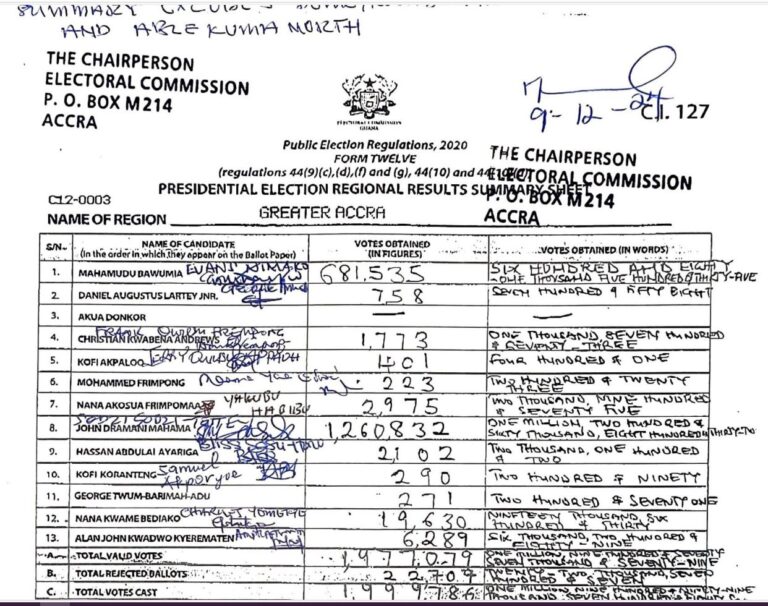 SUMMARY EXCLUDES
AND ABLEKUMA NORTH
THE CHAIRPERSON
ELECTORAL COMMISSION
P. O. BOX M214
ACCRA
ELECTORAL COMMISSION
GHANA
9-12-24
C.I. 127
Public Election Regulations, 2020
FORM TWELVE
(regulations 44(9)(c),(d),(f) and (g), 44(10) and
THE CHAIRPERSON
ELECTORAL COMMISSION
P. O. BOX M214
ACCRA
PRESIDENTIAL ELECTION REGIONAL RESULTS SUMMARY SHEET
C12-0003
NAME OF REGION GREATER ACCRA
S/N NAME OF CANDIDATE (In the order in which they appear on the Ballot Paper) VOTES OBTAINED (IN FIGURES) VOTES OBTAINED (IN WORDS)
1. MAHAMUDU BAWUMIA EVANS NIMAKO 681,535 SIX HUNDRED AND EIGHTY -ONE THOUSAND FIVE HUNDRED & THIRTY-FIVE
2. DANIEL AUGUSTUS LARTEY JNR. 758 SEVEN HUNDRED & FIFTY EIGHT
3. AKUA DONKOR — —
4. CHRISTIAN KWABENA ANDREWS FRANK 1,773 ONE THOUSAND SEVEN HUNDRED & SEVENTY-THREE
5. KOFI AKPALOO 401 FOUR HUNDRED & ONE
6. MOHAMMED FRIMPONG 223 TWO HUNDRED & TWENTY THREE
7. NANA AKOSUA FRIMPOMAA YAKUBU HABIBU 2,975 TWO THOUSAND, NINE HUNDRED & SEVENTY FIVE
8. JOHN DRAMANI MAHAMA 1,260,832 ONE MILLION, TWO HUNDRED & SIXTY THOUSAND, EIGHT HUNDRED & THIRTY-TWO
9. HASSAN ABDULAI AYARIGA 2,102 TWO THOUSAND, ONE HUNDRED & TWO
10. KOFI KORANTENG Samuel 290 TWO HUNDRED & NINETY
11. GEORGE TWUM-BARIMAH-ADU 271 TWO HUNDRED & SEVENTY ONE
12. NANA KWAME BEDIAKO 19,630 NINETEEN THOUSAND, SIX HUNDRED & THIRTY
13. ALAN JOHN KWADWO KYEREMATEN 6,289 SIX THOUSAND, TWO HUNDRED & EIGHTY-NINE
A. TOTAL VALID VOTES 1,977,079 ONE MILLION, NINE HUNDRED & SEVENTY SEVEN THOUSAND & SEVENTY-NINE
B. TOTAL REJECTED BALLOTS 22,709 TWENTY TWO THOUSAND, SEVEN HUNDRED &
C. TOTAL VOTES CAST 1,999,786 ONE MILLION NINE HUNDRED & NINETY-NINE THOUSAND SEVEN HUNDRED &